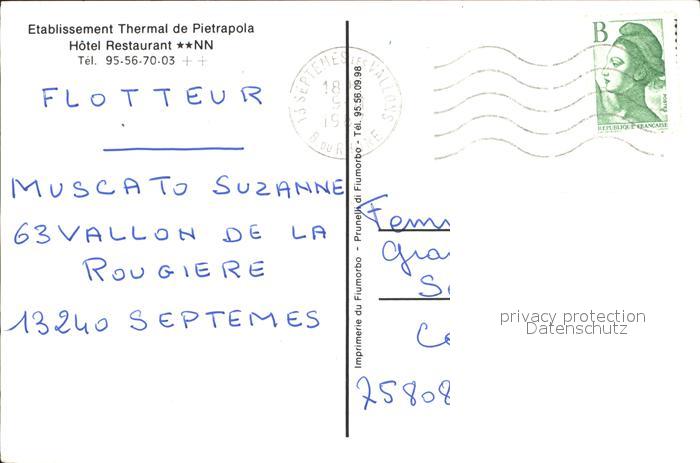 Etablissement Thermal de Pietrapola
Hôtel Restaurant ★★NN
Tél. 95-56-70-03 ++
FLOTTEUR
MUSCATO SUZANNE
63 VALLON DE LA
ROUGIERE
13240 SEPTEMES
Imprimerie du Fiumorbo - Prunelli di Fiumorbo - Tél. 95.56.09.98
13 SEPTEMES LES VALLONS
B. DU RHONE
B
REPUBLIQUE FRANÇAISE
Fem
Gra
75808
privacy protection
Datenschutz